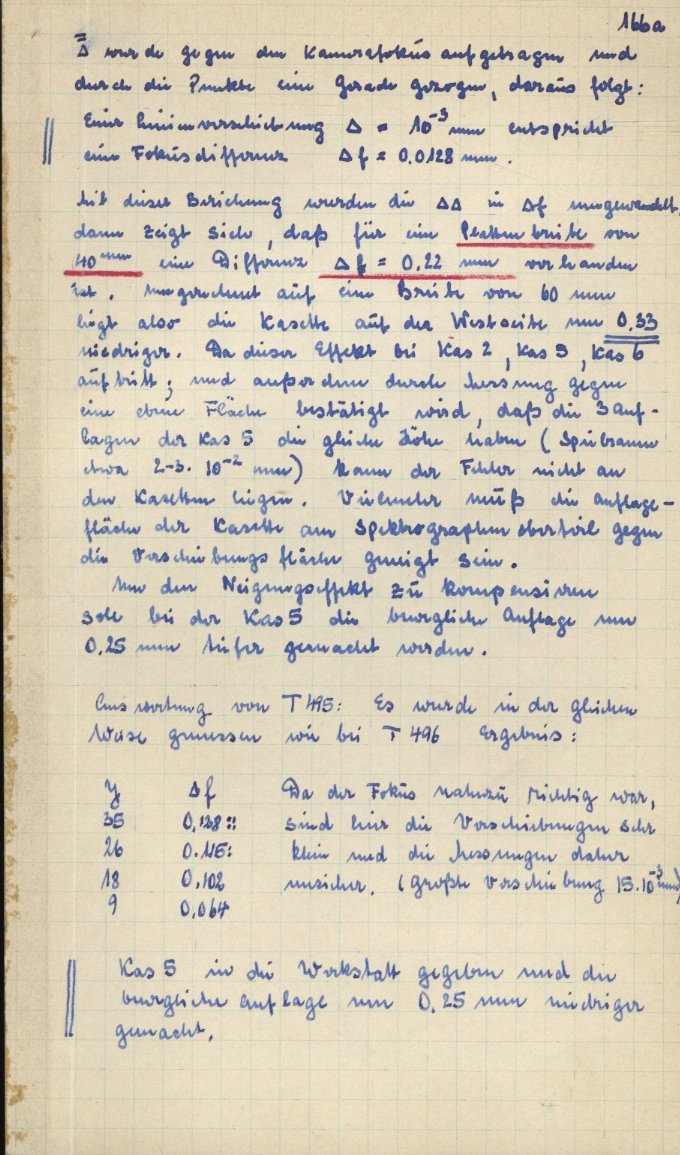 166a
Δ̿ wurde gegen den Kamerafokus aufgetragen und
durch die Punkte eine Gerade gezogen, daraus folgt:
Einer Linienverschiebung Δ = 10⁻³ mm entspricht
eine Fokusdifferenz Δf = 0.0128 mm.
Mit dieser Beziehung wurden die ΔΔ in Δf umgewandelt,
dann zeigt sich, daß für eine Plattenbreite von
40 mm eine Differenz Δf = 0,22 mm vorhanden
ist. Umgerechnet auf eine Breite von 60 mm
liegt also die Kasette auf der Westseite um 0,33
niedriger. Da dieser Effekt bei Kas 2, Kas 5, Kas 6
auftritt, und außerdem durch Messung gegen
eine ebene Fläche bestätigt wird, daß die 3 Auf-
lagen der Kas 5 die gleiche Höhe haben (Spielraum
etwa 2-3. 10⁻² mm) kann der Fehler nicht an
den Kasetten liegen. Vielmehr muß die Auflage-
fläche der Kasette am Spektrographenoberteil gegen
die Verschiebungsfläche geneigt sein.
Um den Neigungseffekt zu kompensieren
soll bei der Kas 5 die bewegliche Auflage um
0,25 mm tiefer gemacht werden.
Auswertung von T 495: Es wurde in der gleichen
Weise gemessen wie bei T 496 Ergebnis:
y Δf Da der Fokus nahezu richtig war,
35 0,128 :: sind hier die Verschiebungen sehr
26 0.115: klein und die Messungen daher
18 0.102 unsicher. (größte Verschiebung 15.10⁻³ mm)
9 0,064
Kas 5 in die Werkstatt gegeben und die
bewegliche Auflage um 0,25 mm niedriger
gemacht.